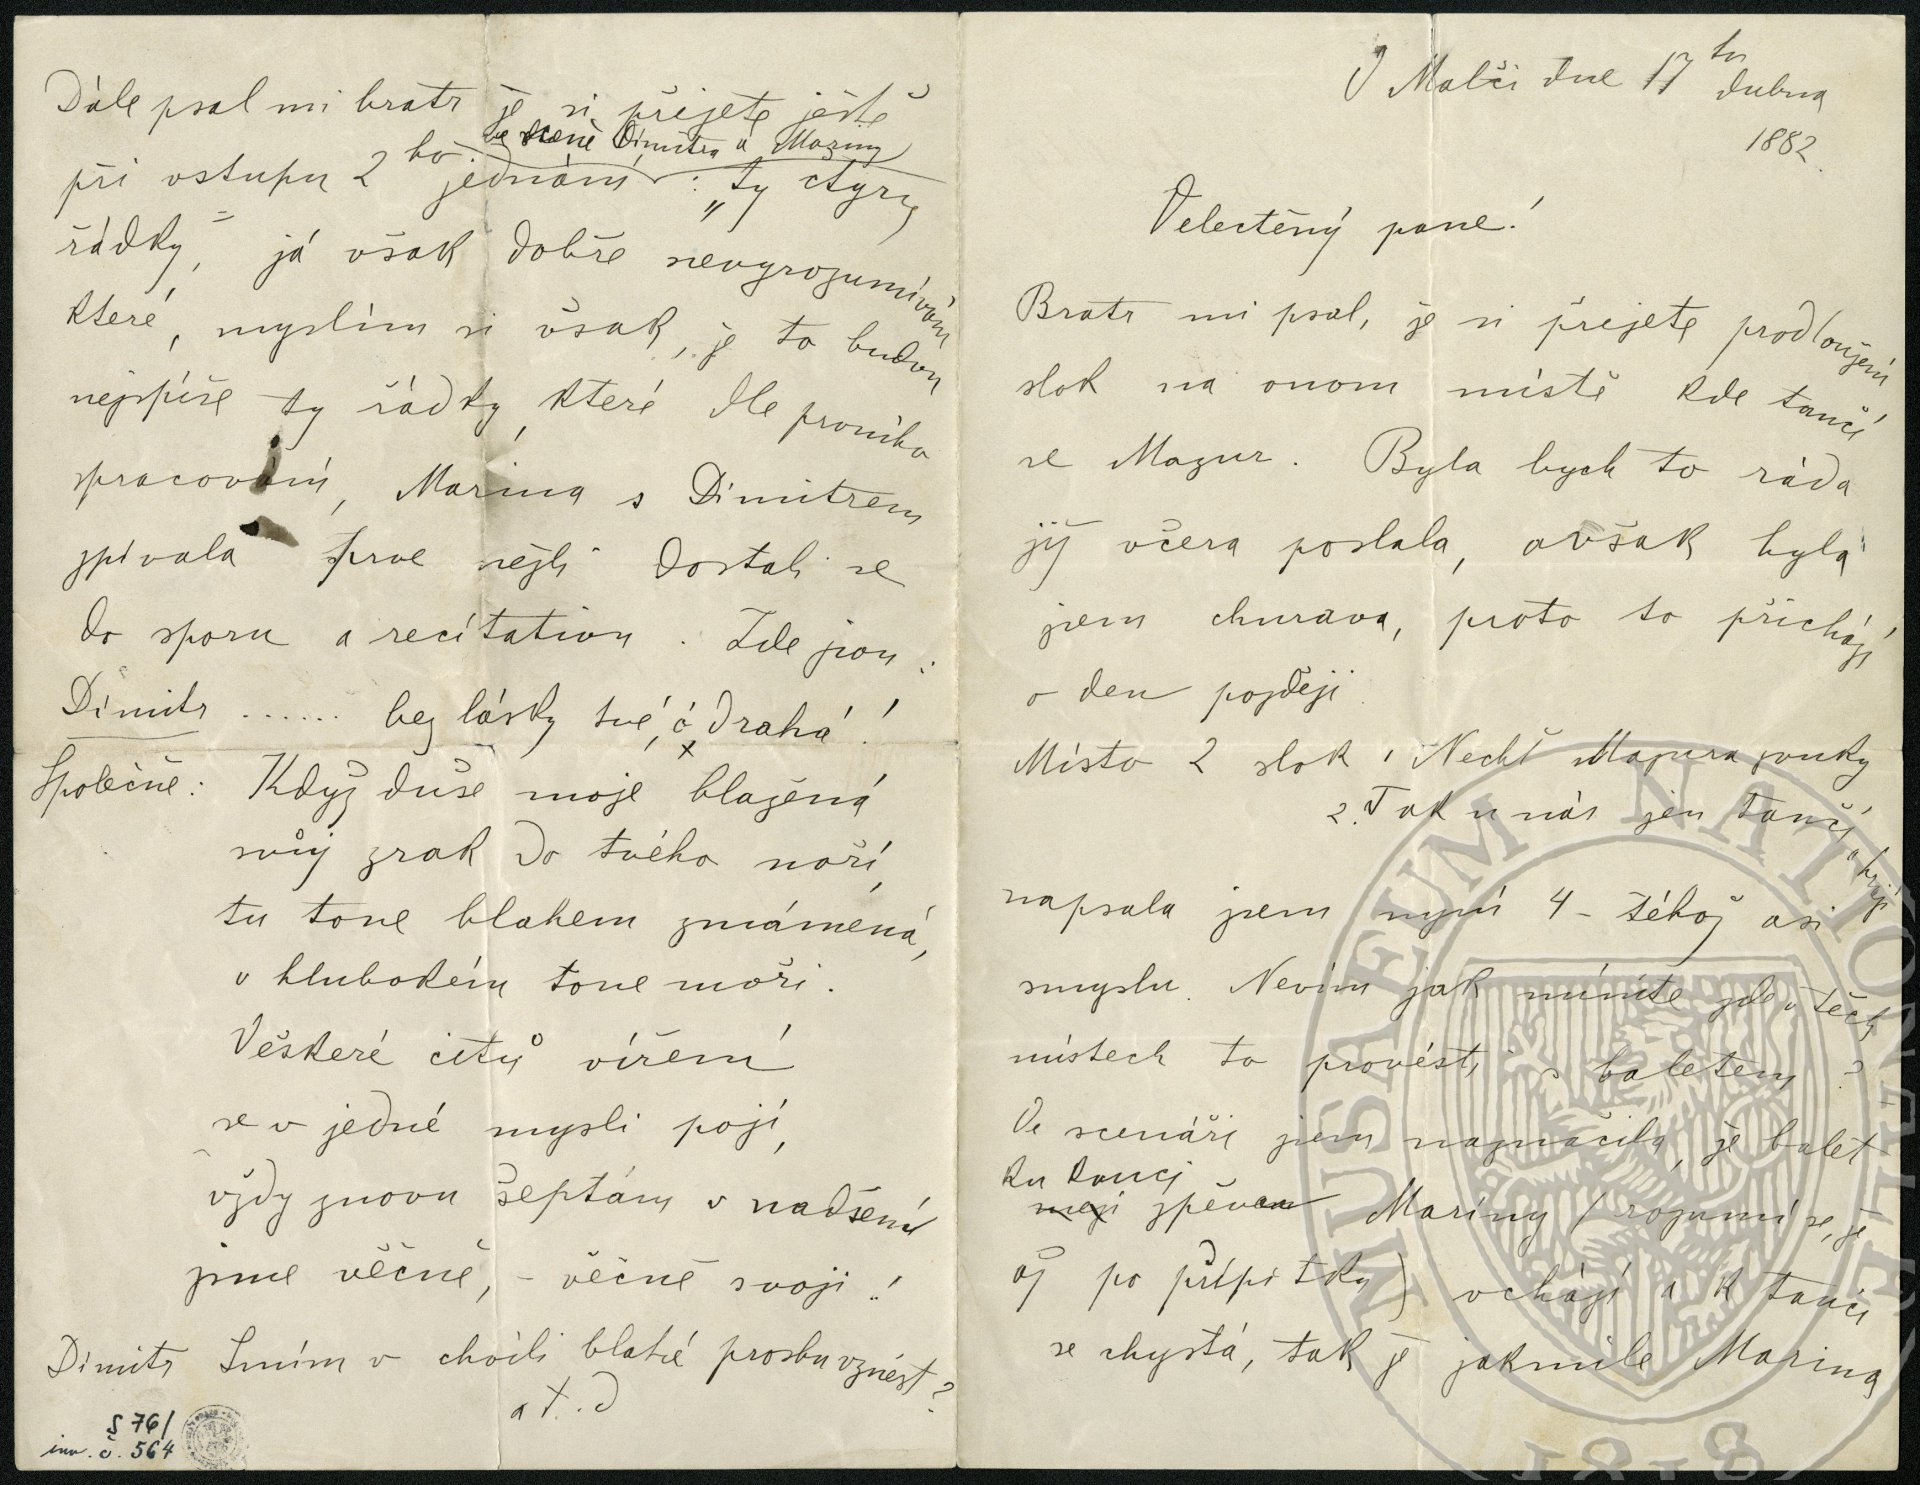 V Malči dne 17tn dubna
1882.
Velectěný pane!
Bratr mi psal, že si přejete prodloužení
slok na onom místě kde tančí
se Mazur. Byla bych to ráda
již včera poslala, avšak byla
jsem churava, proto to přichází
o den později.
Místo 2 slok 1 Nechť Mazura zvuky
2. Tak u nás jen tančí a hrají
napsala jsem nyní 4 – téhož asi
smyslu. Nevím jak míníte zde v těch
místech to provésti s baletem?
Ve scenáři jsem naznačila, že balet
ku konci
mezi zpěvem Mariny (rozumí se, že
až po přípitku) vchází a k tanci
se chystá, tak že jakmile Marina
Dále psal mi bratr že si přejete ještě
ve scéně Dimitra a Mariny
při vstupu 2ho jednání : „ty čtyry
řádky", já však dobře nevyrozumívám
které, myslím si však, že to budou
nejspíše ty řádky, které dle prvního
spracování, Marina s Dimitrem
zpívala prve nežli dostali se
do sporu a recitativu. Zde jsou:
Dimitr ...... bez lásky tvé, ó drahá!
Společně: Když duše moje blažená
svůj zrak do tvého noří,
tu tone blahem zmámená,
v hlubokém tone moři.
Veškeré citů víření
se v jedné mysli pojí,
vždy znovu šeptám v nadšení
jsme věčně, – věčně svoji!
Dimitr Smím v chvíli blahé prosbu vznést?
a t. d
S 76/
inv. č. 564
MUSAEUM NATIONALE
1818